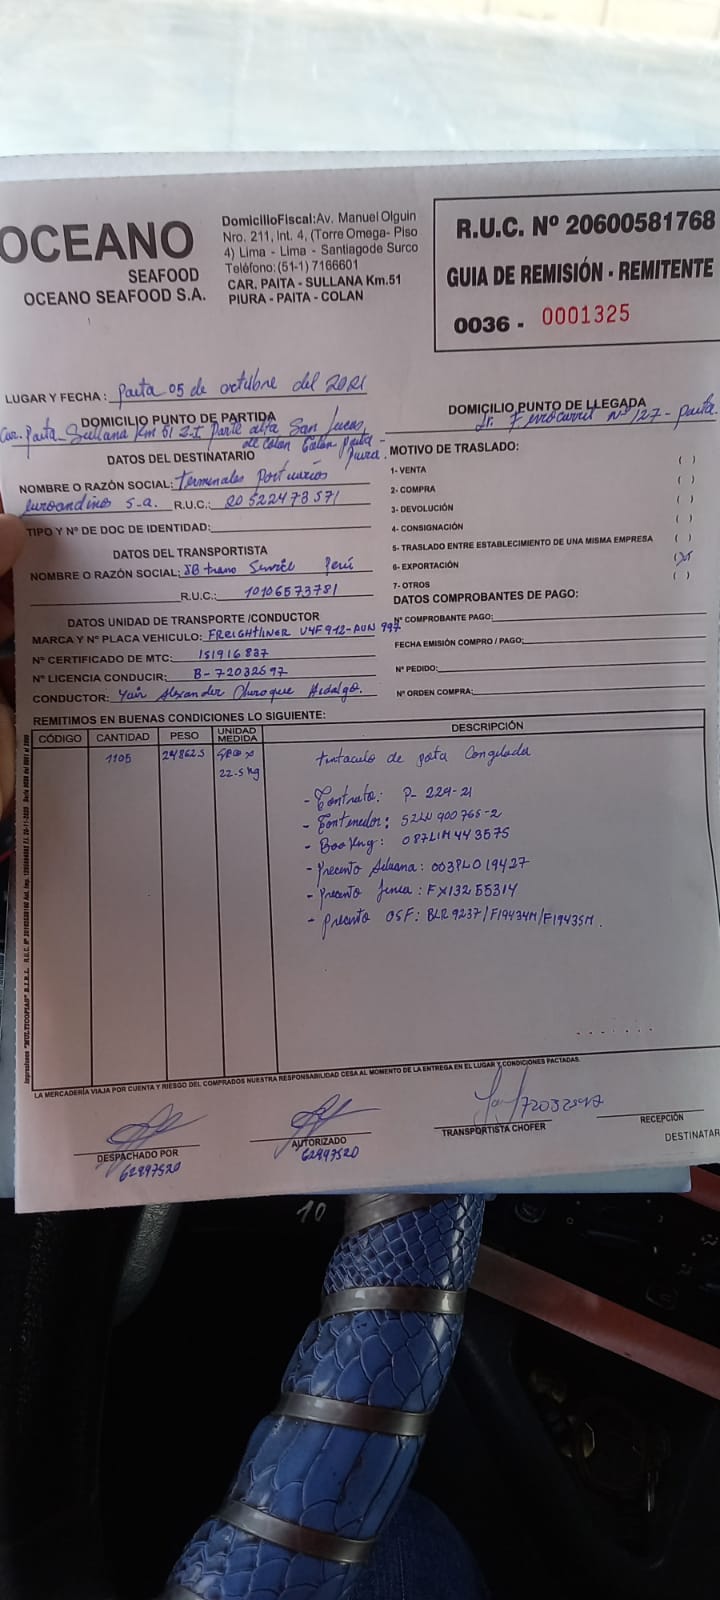 OCEANO
SEAFOOD
OCEANO SEAFOOD S.A.
DomicilioFiscal:Av. Manuel Olguin
Nro. 211, Int. 4, (Torre Omega- Piso
4) Lima - Lima - Santiagode Surco
Teléfono:(51-1) 7166601
CAR. PAITA - SULLANA Km.51
PIURA - PAITA - COLAN
R.U.C. Nº 20600581768
GUIA DE REMISIÓN - REMITENTE
0036 - 0001325
LUGAR Y FECHA : Paita 05 de octubre del 2021
DOMICILIO PUNTO DE PARTIDA
Car. Paita Sullana Km 51 Parte alta San Lucas,
de Colan Colan Paita - Piura.
DOMICILIO PUNTO DE LLEGADA
Jr. Ferrocarril Nº 127 - paita.
DATOS DEL DESTINATARIO
NOMBRE O RAZÓN SOCIAL: Terminales Portuarios
Euroandinos S.a. R.U.C.: 20522473571
TIPO Y Nº DE DOC DE IDENTIDAD:
DATOS DEL TRANSPORTISTA
NOMBRE O RAZÓN SOCIAL: JB trans Servic Perú
R.U.C.: 10106573781
DATOS UNIDAD DE TRANSPORTE /CONDUCTOR
MARCA Y Nº PLACA VEHICULO: FREIGHTLINER V4F 912-AUN 997
Nº CERTIFICADO DE MTC: 151916837
Nº LICENCIA CONDUCIR: B-72032597
CONDUCTOR: Yair Alexander Chiroque Hidalgo.
MOTIVO DE TRASLADO:
1- VENTA ( )
2- COMPRA ( )
3- DEVOLUCIÓN ( )
4- CONSIGNACIÓN ( )
5- TRASLADO ENTRE ESTABLECIMIENTO DE UNA MISMA EMPRESA ( )
6- EXPORTACIÓN (x)
7- OTROS ( )
DATOS COMPROBANTES DE PAGO:
Nº COMPROBANTE PAGO:
FECHA EMISIÓN COMPRO / PAGO:
Nº PEDIDO:
Nº ORDEN COMPRA:
REMITIMOS EN BUENAS CONDICIONES LO SIGUIENTE:
CÓDIGO CANTIDAD PESO UNIDAD MEDIDA DESCRIPCIÓN
1105 24862.5 22.5 Kg tintaculo de pota Congelada
- Contrato: P-229-21
- Contenedor: SZLU 900765-2
- Booking: 087LIM443575
- Precinto Aduana: 003PLO19427
- Precinto linea: FX13255314
- Precinto OSF: BLR 9237/F19434M/F19435M.
LA MERCADERÍA VIAJA POR CUENTA Y RIESGO DEL COMPRADOS NUESTRA RESPONSABILIDAD CESA AL MOMENTO DE LA ENTREGA EN EL LUGAR Y CONDICIONES PACTADAS.
DESPACHADO POR
62897520
AUTORIZADO
62897520
72032597
TRANSPORTISTA CHOFER
RECEPCIÓN
DESTINATAR
10